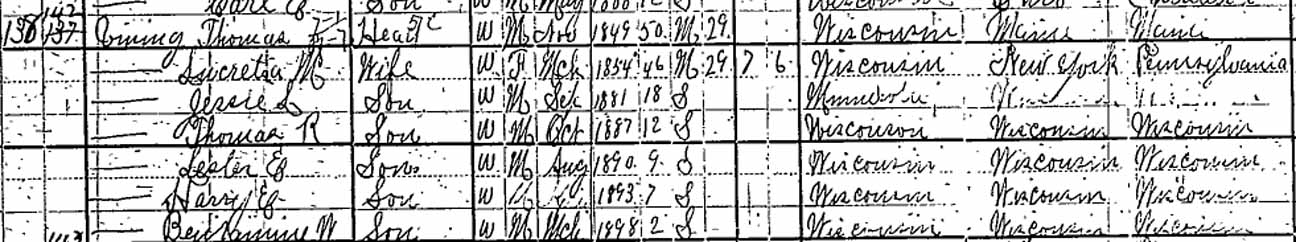 Son W M May
138 137 Thomas Head W M Nov 1849 50 M 29 Wisconsin Maine Maine
Lucretia M Wife W F Mch 1854 46 M 29 7 6 Wisconsin New York Pennsylvania
Jessie L Son W M 1881 18 S
Thomas R Son W M Oct 1887 12 S Wisconson Wisconsin Wisconsin
Lester E Son W M Aug 1890 9 S Wisconsin Wisconsin Wisconsin
Harry E Son W 1893 7 S Wisconsin Wisconsin Wisconsin
Benjamine W Son W M Mch 1898 2 S Wisconsin Wisconsin Wisconsin